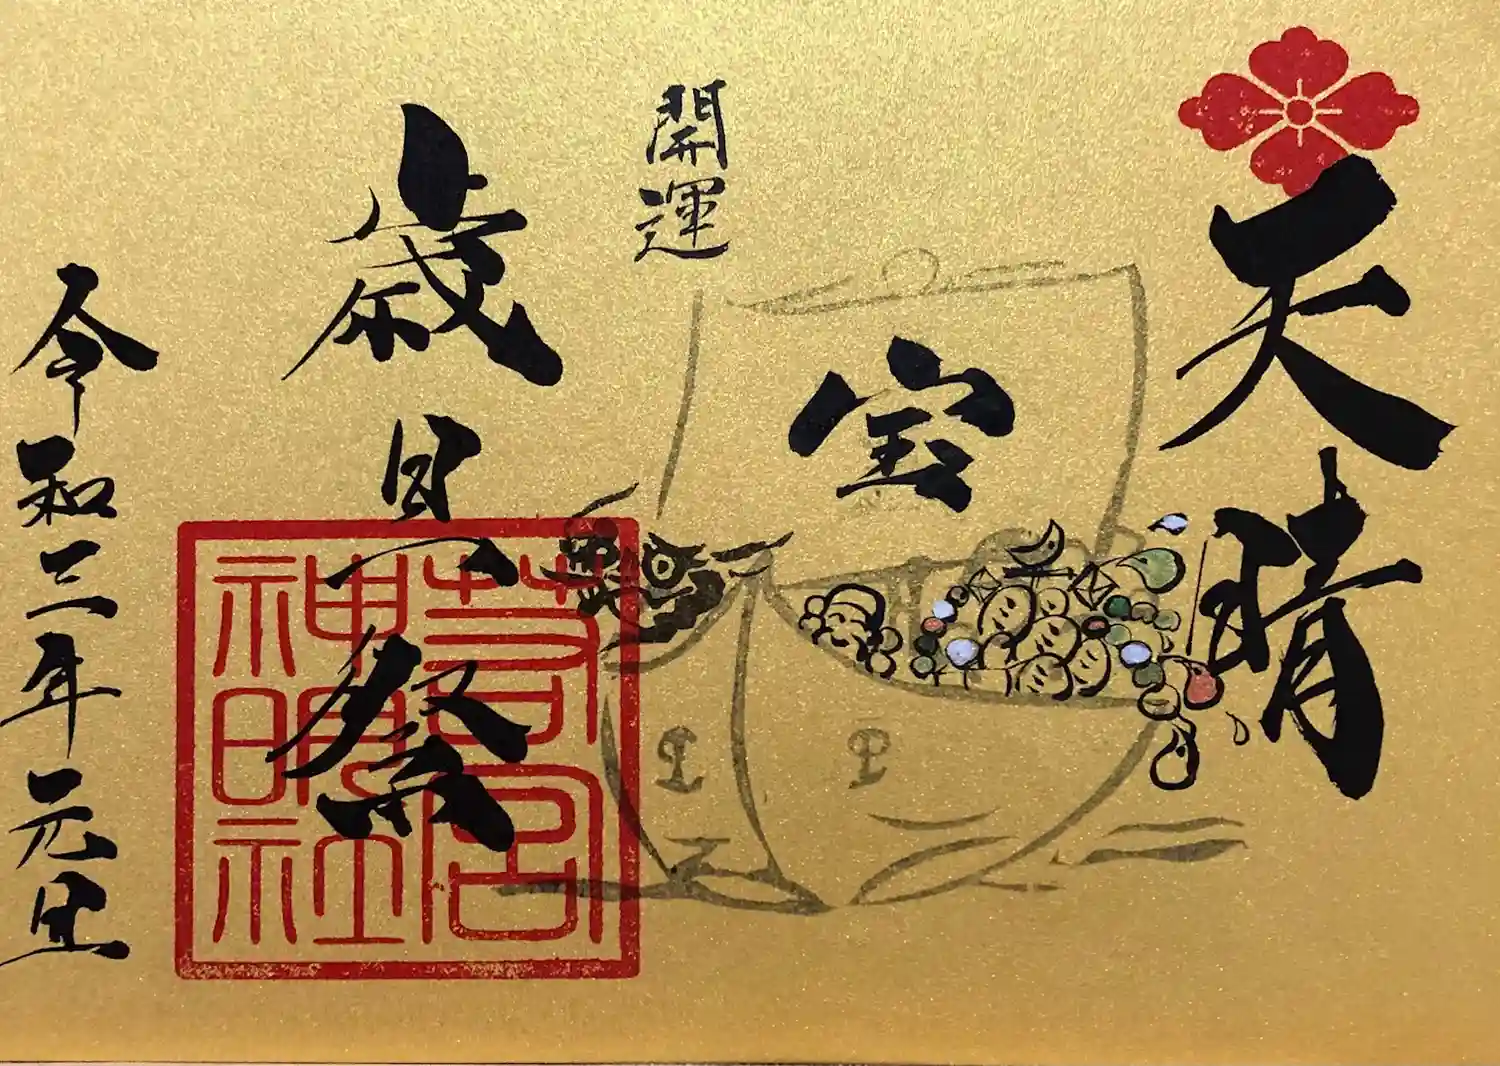 天晴
宝
開運
歳旦祭
令和三年元旦
若宮
神明社